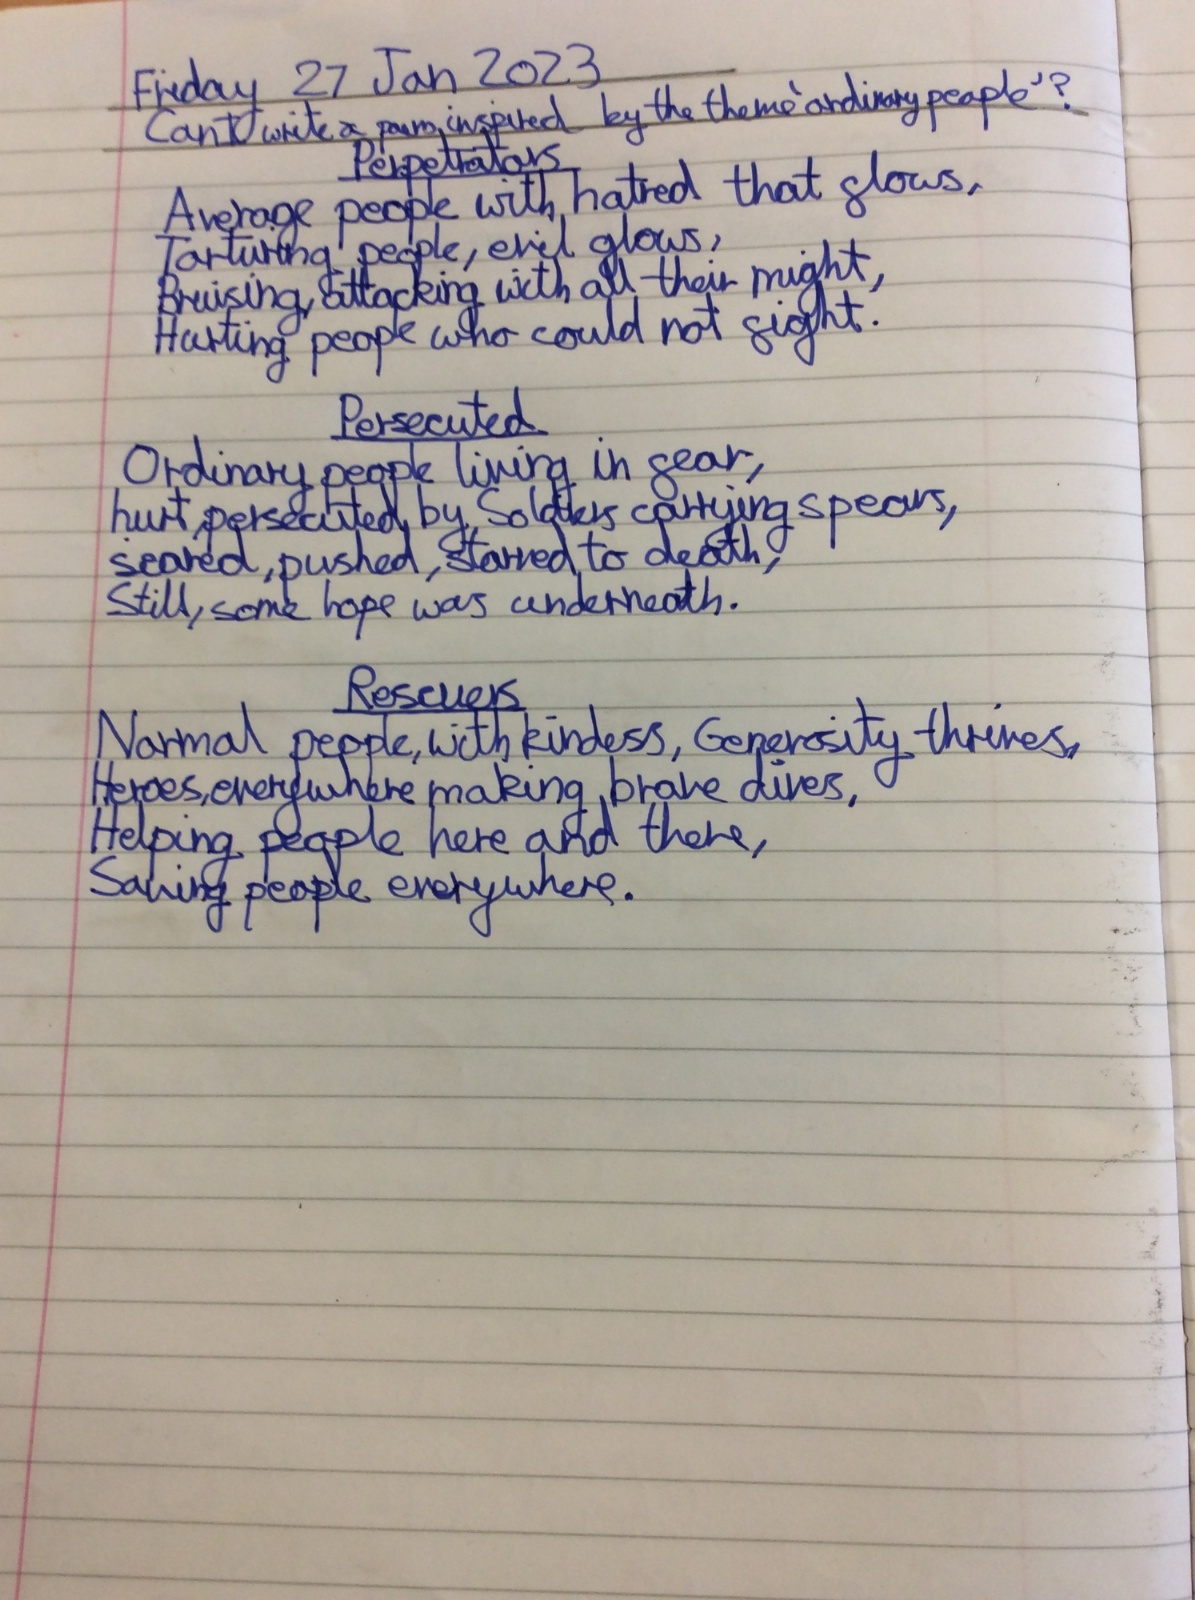 Friday 27 Jan 2023
Can I write a poem inspired by the the theme 'ordinary people'?
Perpetrators
Average people with hatred that flows,
Torturing people, evil glows,
Bruising, attacking with all their might,
Hurting people who could not fight.
Persecuted
Ordinary people living in fear,
hurt, persecuted, by Soldiers carrying spears,
scared, pushed, starved to death,
Still, some hope was underneath.
Rescuers
Normal people, with kindess, Generosity thrives,
Heroes, everywhere making brave dives,
Helping people here and there,
Saving people everywhere.